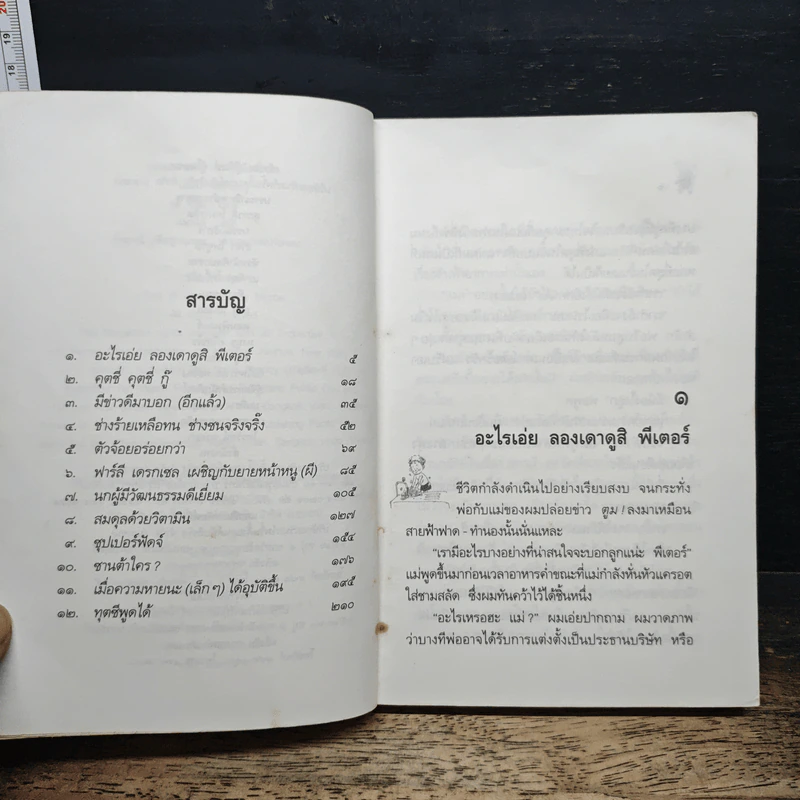 20
19
18
สารบัญ
๑. อะไรเอ่ย ลองเดาดูสิ พีเตอร์ ๕
๒. คุตชี่ คุตชี่ กู๊ ๑๘
๓. มีข่าวดีมาบอก (อีกแล้ว) ๓๕
๔. ช่างร้ายเหลือทน ช่างซนจริงจริ๊ง ๕๒
๕. ตัวจ้อยอร่อยกว่า ๖๙
๖. ฟาร์ลี เดรกเซล เผชิญกับยายหน้าหนู (ผี) ๘๕
๗. นกผู้มีวัฒนธรรมดีเยี่ยม ๑๐๕
๘. สมดุลด้วยวิตามิน ๑๒๗
๙. ซุปเปอร์ฟัดจ์ ๑๕๔
๑๐. ซานต้าใคร ? ๑๗๖
๑๑. เมื่อความหายนะ (เล็ก ๆ) ได้อุบัติขึ้น ๑๙๕
๑๒. ทุตซีพูดได้ ๒๑๐
๑
อะไรเอ่ย ลองเดาดูสิ พีเตอร์
ชีวิตกำลังดำเนินไปอย่างเรียบสงบ จนกระทั่ง
พ่อกับแม่ของผมปล่อยข่าว ตูม ! ลงมาเหมือน
สายฟ้าฟาด - ทำนองนั้นนั่นแหละ
"เรามีอะไรบางอย่างที่น่าสนใจจะบอกลูกแน่ะ พีเตอร์"
แม่พูดขึ้นมาก่อนเวลาอาหารค่ำขณะที่แม่กำลังหั่นหัวแครอต
ใส่ชามสลัด ซึ่งผมทันคว้าไว้ได้ชิ้นหนึ่ง
"อะไรเหรอฮะ แม่ ?" ผมเอ่ยปากถาม ผมวาดภาพ
ว่าบางทีพ่ออาจได้รับการแต่งตั้งเป็นประธานบริษัท หรือ